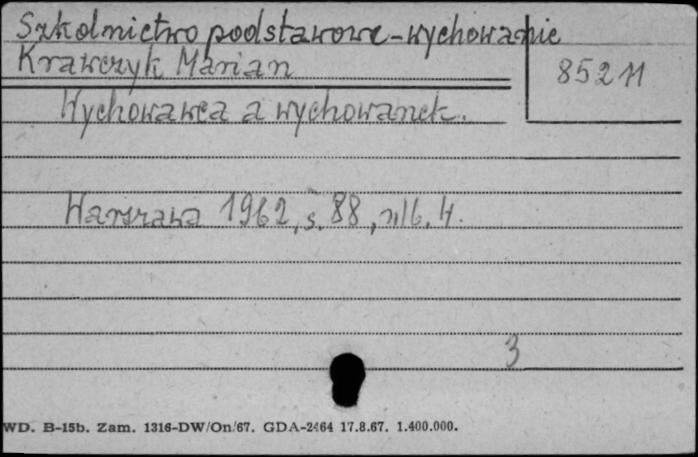 Szkolnictwo podstawowe-wychowanie
Krawczyk Marian
85211
Wychowawca a wychowanek.
Warszawa 1962, s. 88, nlb. 4.
3
WD. B-15b. Zam. 1316-DW/On/67. GDA-2464 17.8.67. 1.400.000.